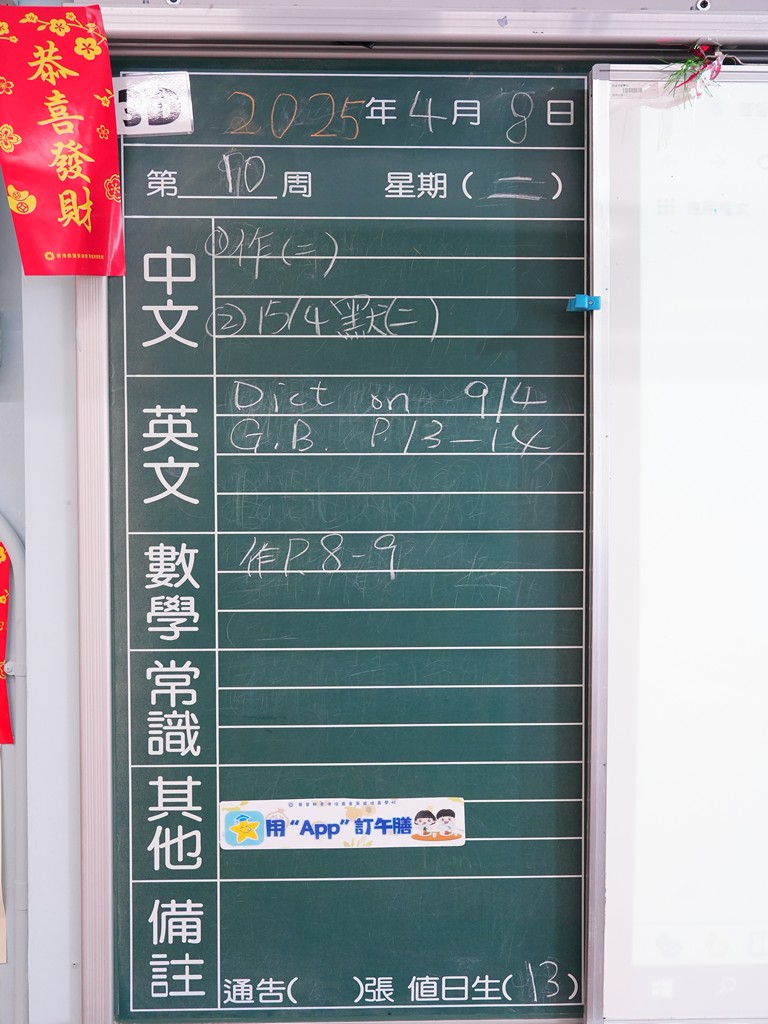 恭喜發財
3D
2025年4月8日
第 10 周 星期(二)
中文
①作(三)
②15/4默(二)
英文
Dict on 9/4
G.B. P.13-14
數學
作P.8-9
常識
其他
用“App”訂午膳
備註
通告( )張 值日生(13)